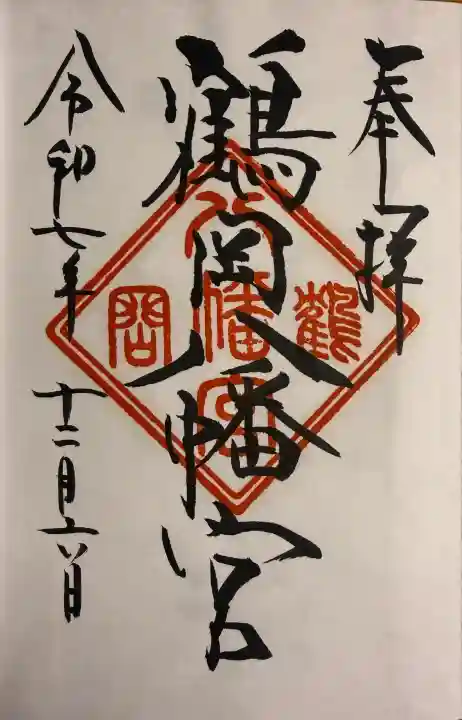 奉拝
鶴岡八幡宮
鶴
八幡宮
岡
令和七年 十二月六日